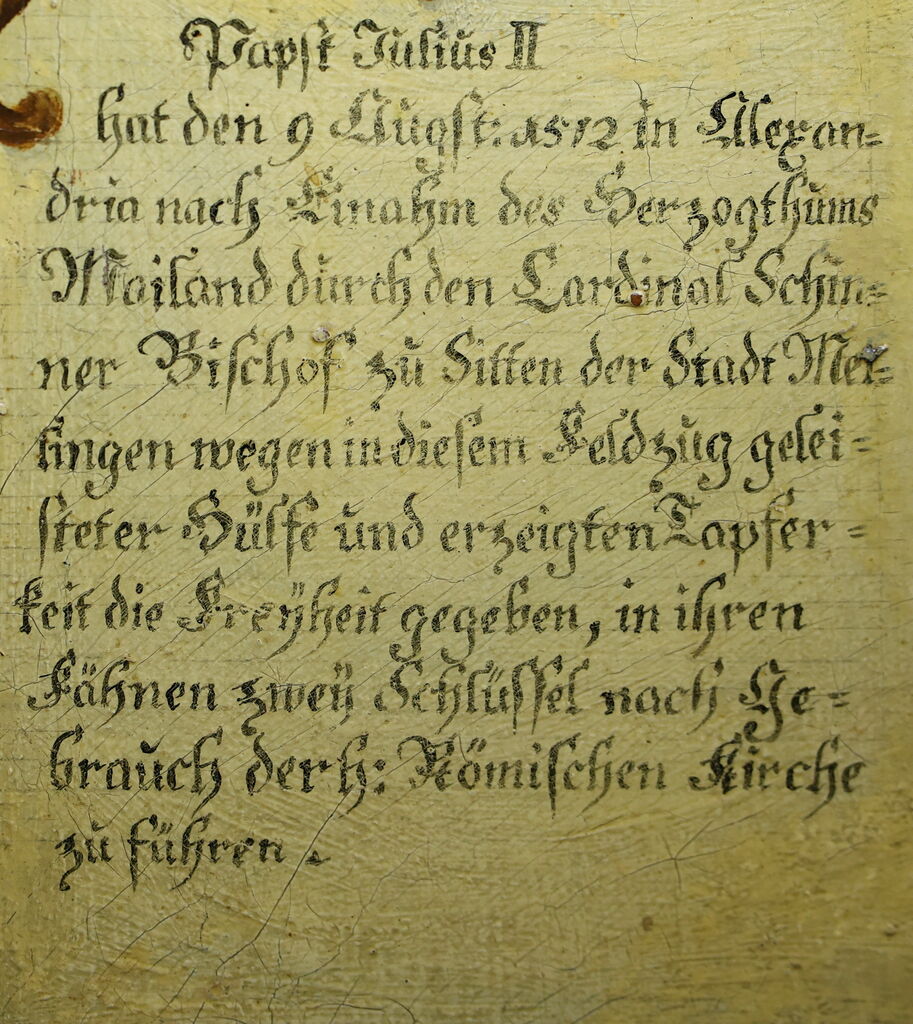 Papst Julius II
hat den 9 Augst: 1512 in Alexan=
dria nach Einahm des Herzogthums
Mailand durch den Cardinal Schin=
ner Bischof zu Sitten der Stadt Mel=
lingen wegen in diesem Feldzug gelei=
steter Hülfe und erzeigten Tapfer=
keit die Freÿheit gegeben, in ihren
Fähnen zweÿ Schlüssel nach Ge=
brauch der h: Römischen Kirche
zu führen.